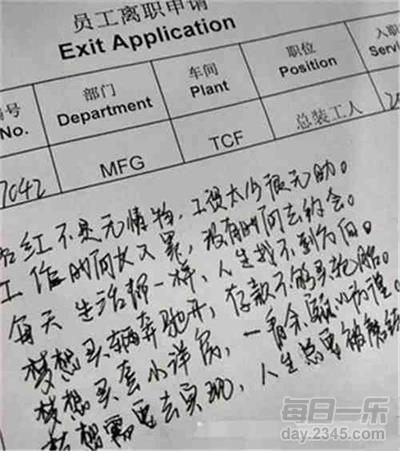 员工离职申请
Exit Application
编号 部门 车间 职位 入职
No. Department Plant Position Servi
7042 MFG TCF 总装工人
落红不是无情物，工资太少很无助。
工作时间长又累，没有时间去约会。
每天生活都一样，人生找不到方向。
梦想买辆奔驰开，存款不够买轮胎。
梦想买套小洋房，一看余额
梦想需要去实现，人生总要被磨练
每日一乐
day.2345.com